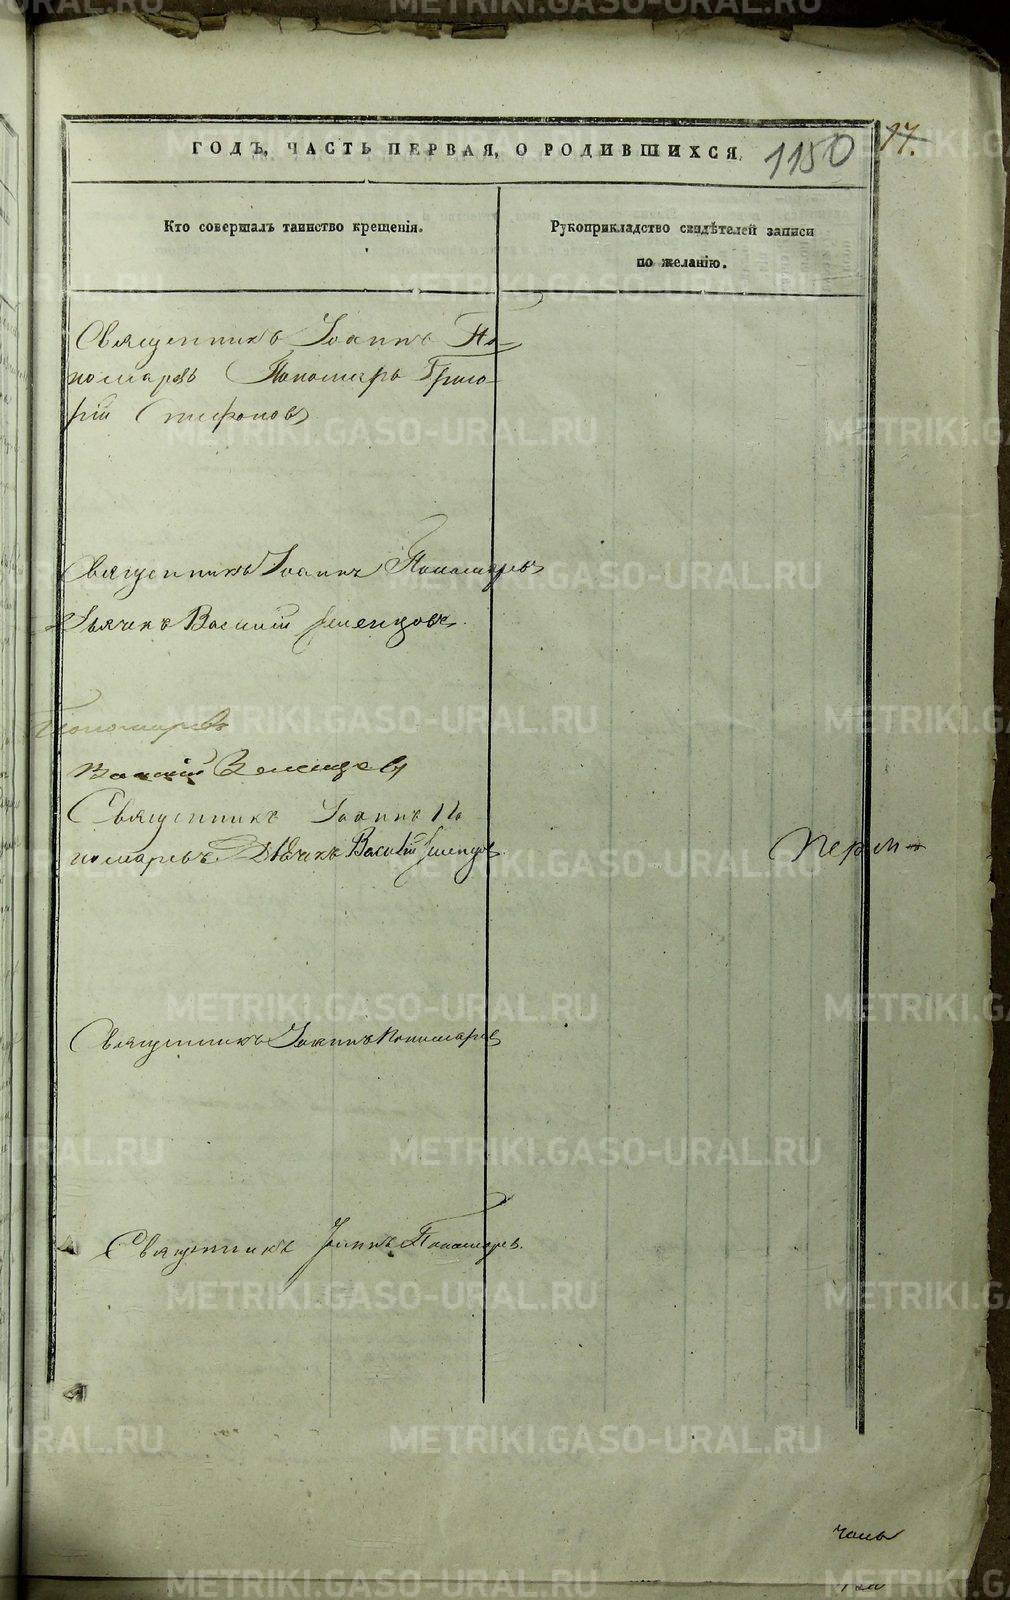 ГОДЪ, ЧАСТЬ ПЕРВАЯ, О РОДИВШИХСЯ,
1150
17.
Кто совершалъ таинство крещенія.
Рукоприкладство свидѣтелей записи
по желанію.
Священникъ Іоаннъ По-
номаревъ Пономарь Григо-
рій
Священникъ Іоаннъ Пономаревъ
Дьячекъ Василій Зеленцовъ.
Пономаревъ
Василій Зеленцовъ
Священникъ Іоаннъ По
номаревъ Дьячекъ Василій Зеленцовъ
Перм-
Священникъ Іоаннъ Пономаревъ
Священникъ Іоаннъ Пономаревъ.
METRIKI.GASO-URAL.RU